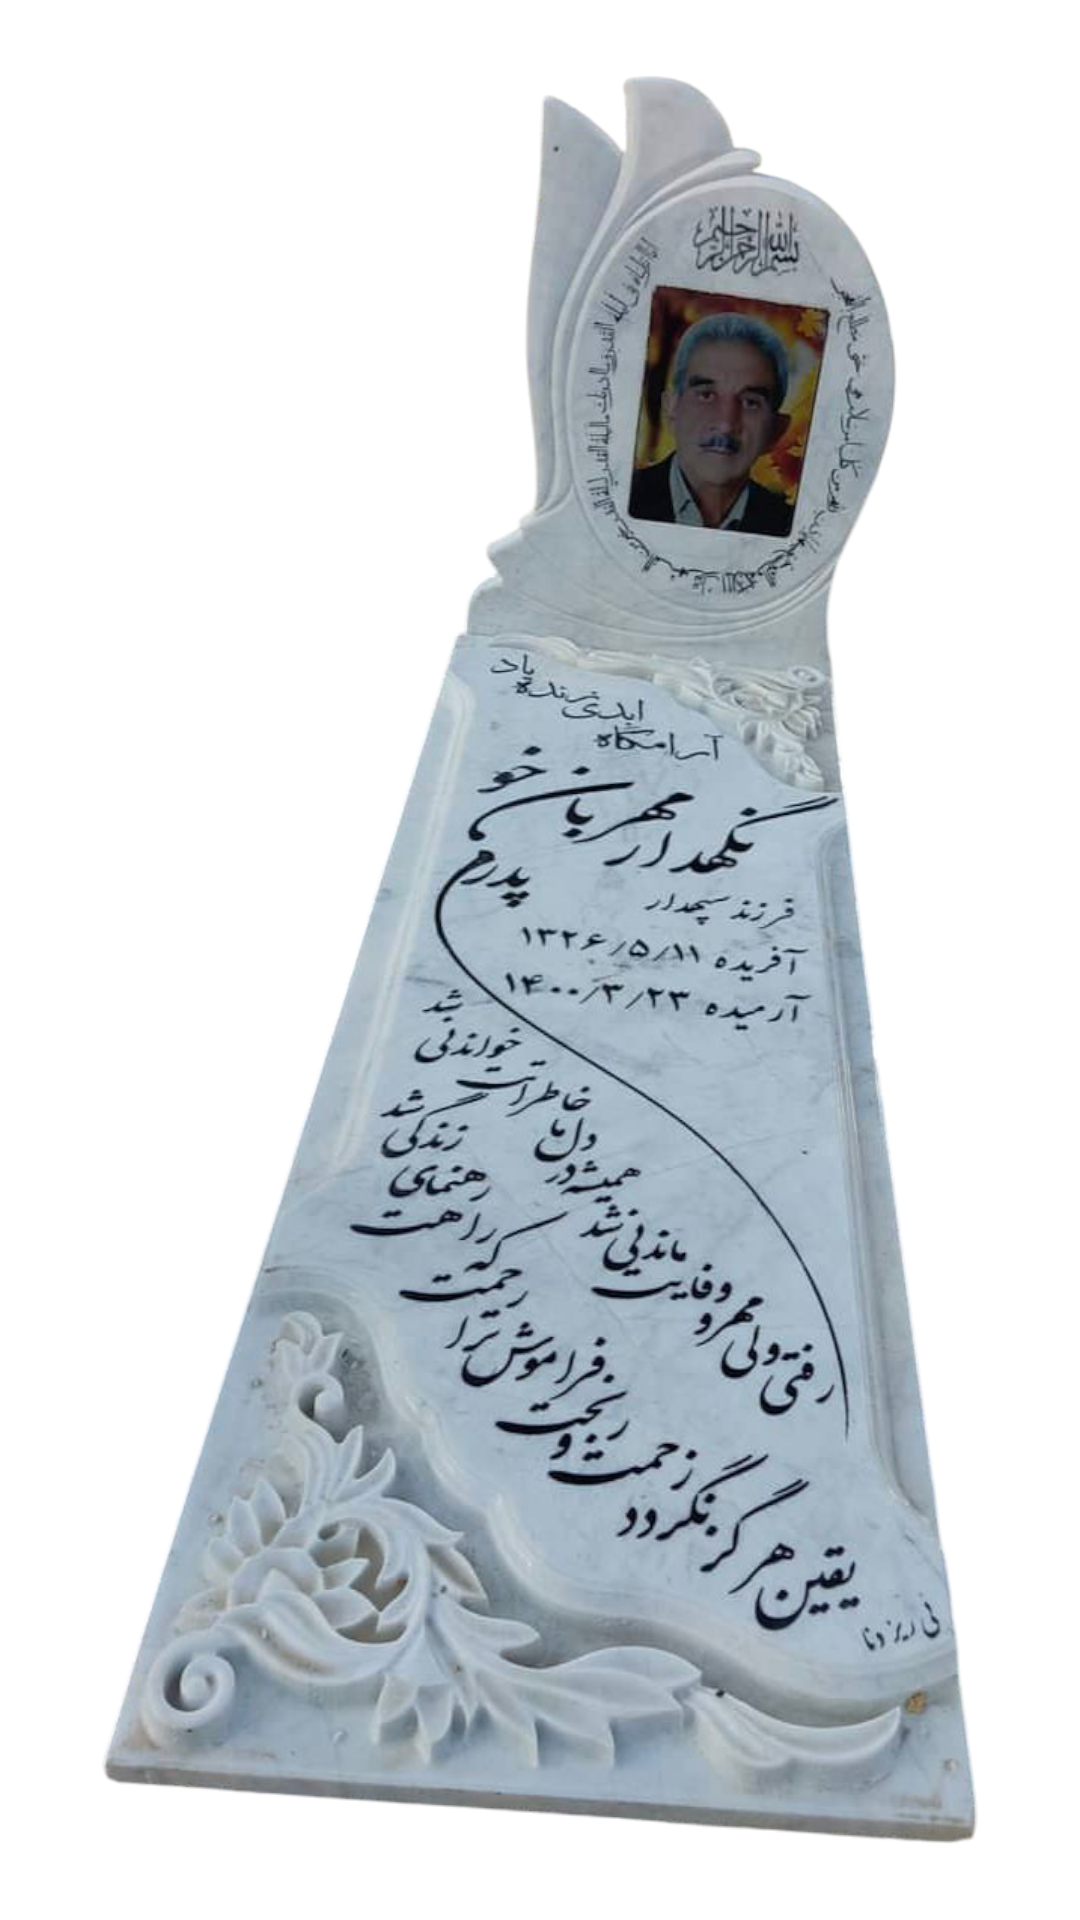 بسم الله الرحمن الرحیم
آرامگاه ابدی زنده یاد
نگهدار مهربان خو
پدرم
فرزند سپهدار
آفریده ۱۳۲۶/۵/۱۱
آرمیده ۱۴۰۰/۳/۲۳
رفتی ولی مهرو وفایت ماندنی شد
همیشه در دل ما خاطراتت خواندنی شد
یقین هرگز نگردد زحمت و رنجت فراموش
ترا رحمت که راهت رهنمای زندگی شد
نی ریز دنا